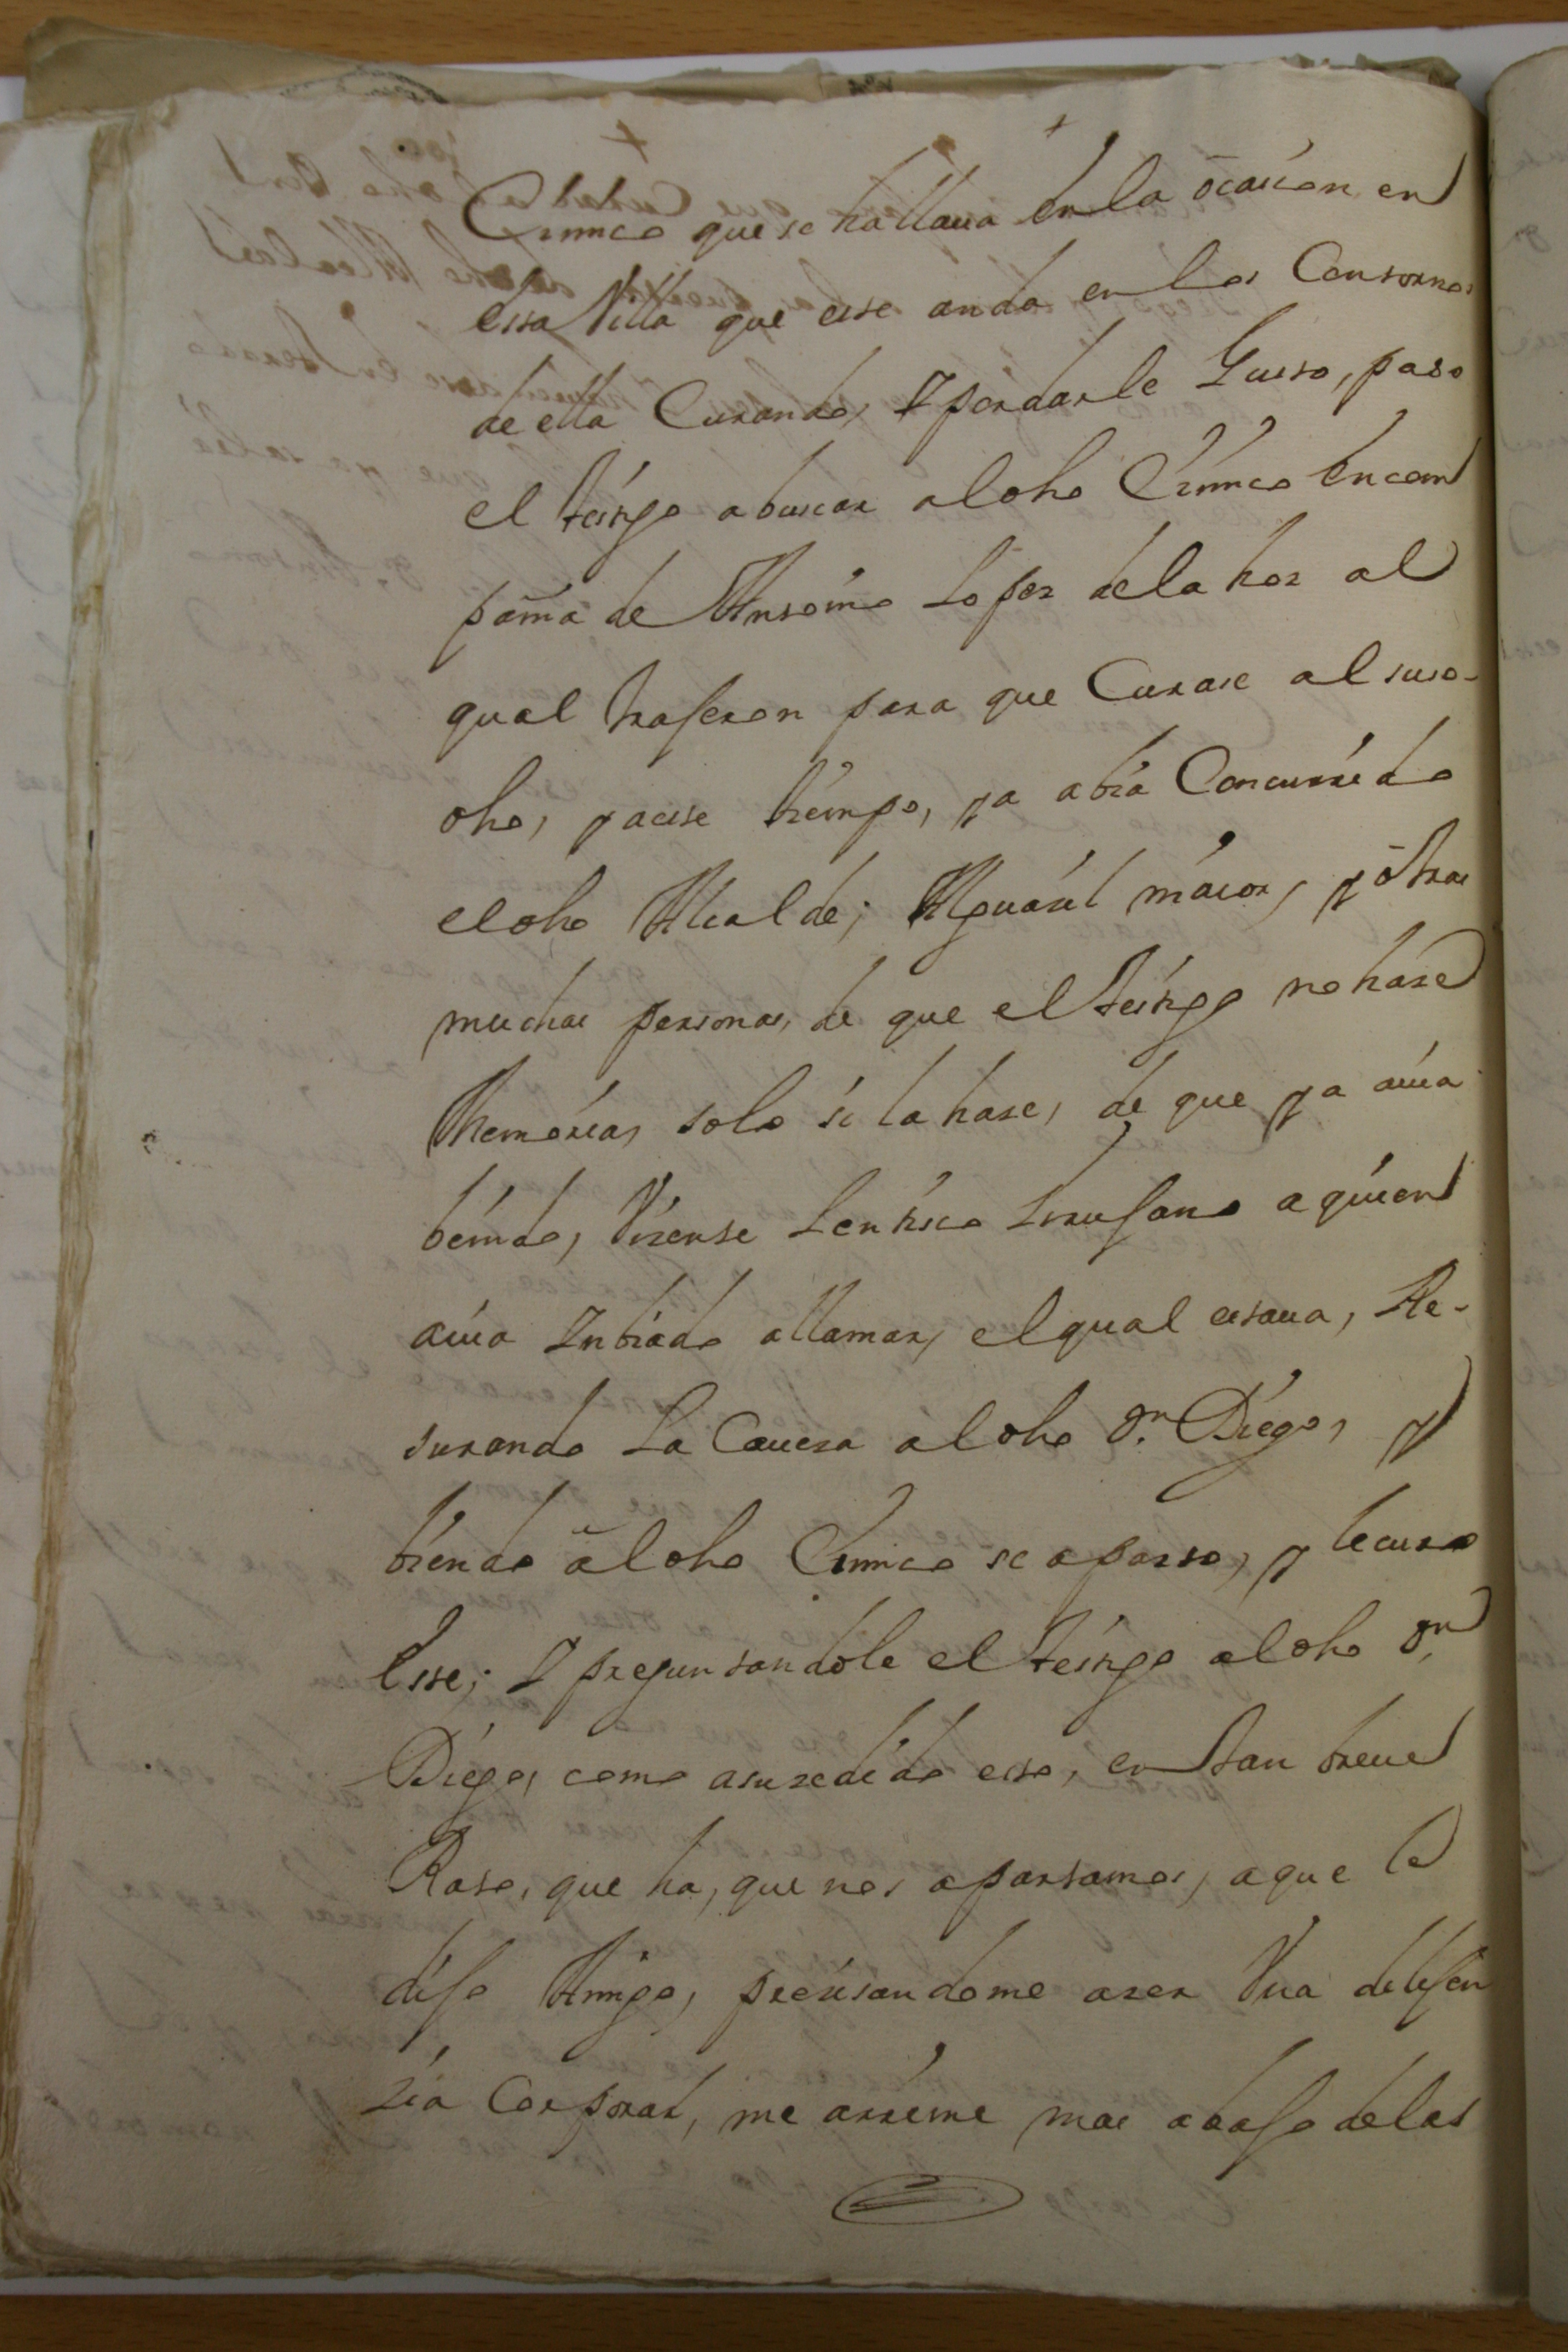 Quimico que se hallaua en la ocaçion en
essa Villa que este anda en los Contornos
de ella Curando, Y por darle Gusto, paso
el testigo a buscar al dho Quimico En com
pañia de Antonio Lopez de la hoz al
qual trajeron para que Curase al suso-
dho, y a ese tiempo, ya abia Concurrido
el dho Alcalde; Alguazil maior, y otras
muchas personas, de que el testigo no haze
Memoria, solo si la haze, de que ya auia
benido, Vizente Sirujano a quien
auia Inbiado a llamar, el qual estaua, Re-
jurando La Caueza al dho Dn. Diego, y
biendo al dho Quimico se aparto, y le curo
Esse; Y preguntandole el testigo al dho Dn.
Diego, como a suzedido esto, en tan breue
Rato, que ha, que nos apartamos, a que le
dijo Amigo, prezisandome azer Vna dilijen
zia Corporal, me arrime mas abajo de las